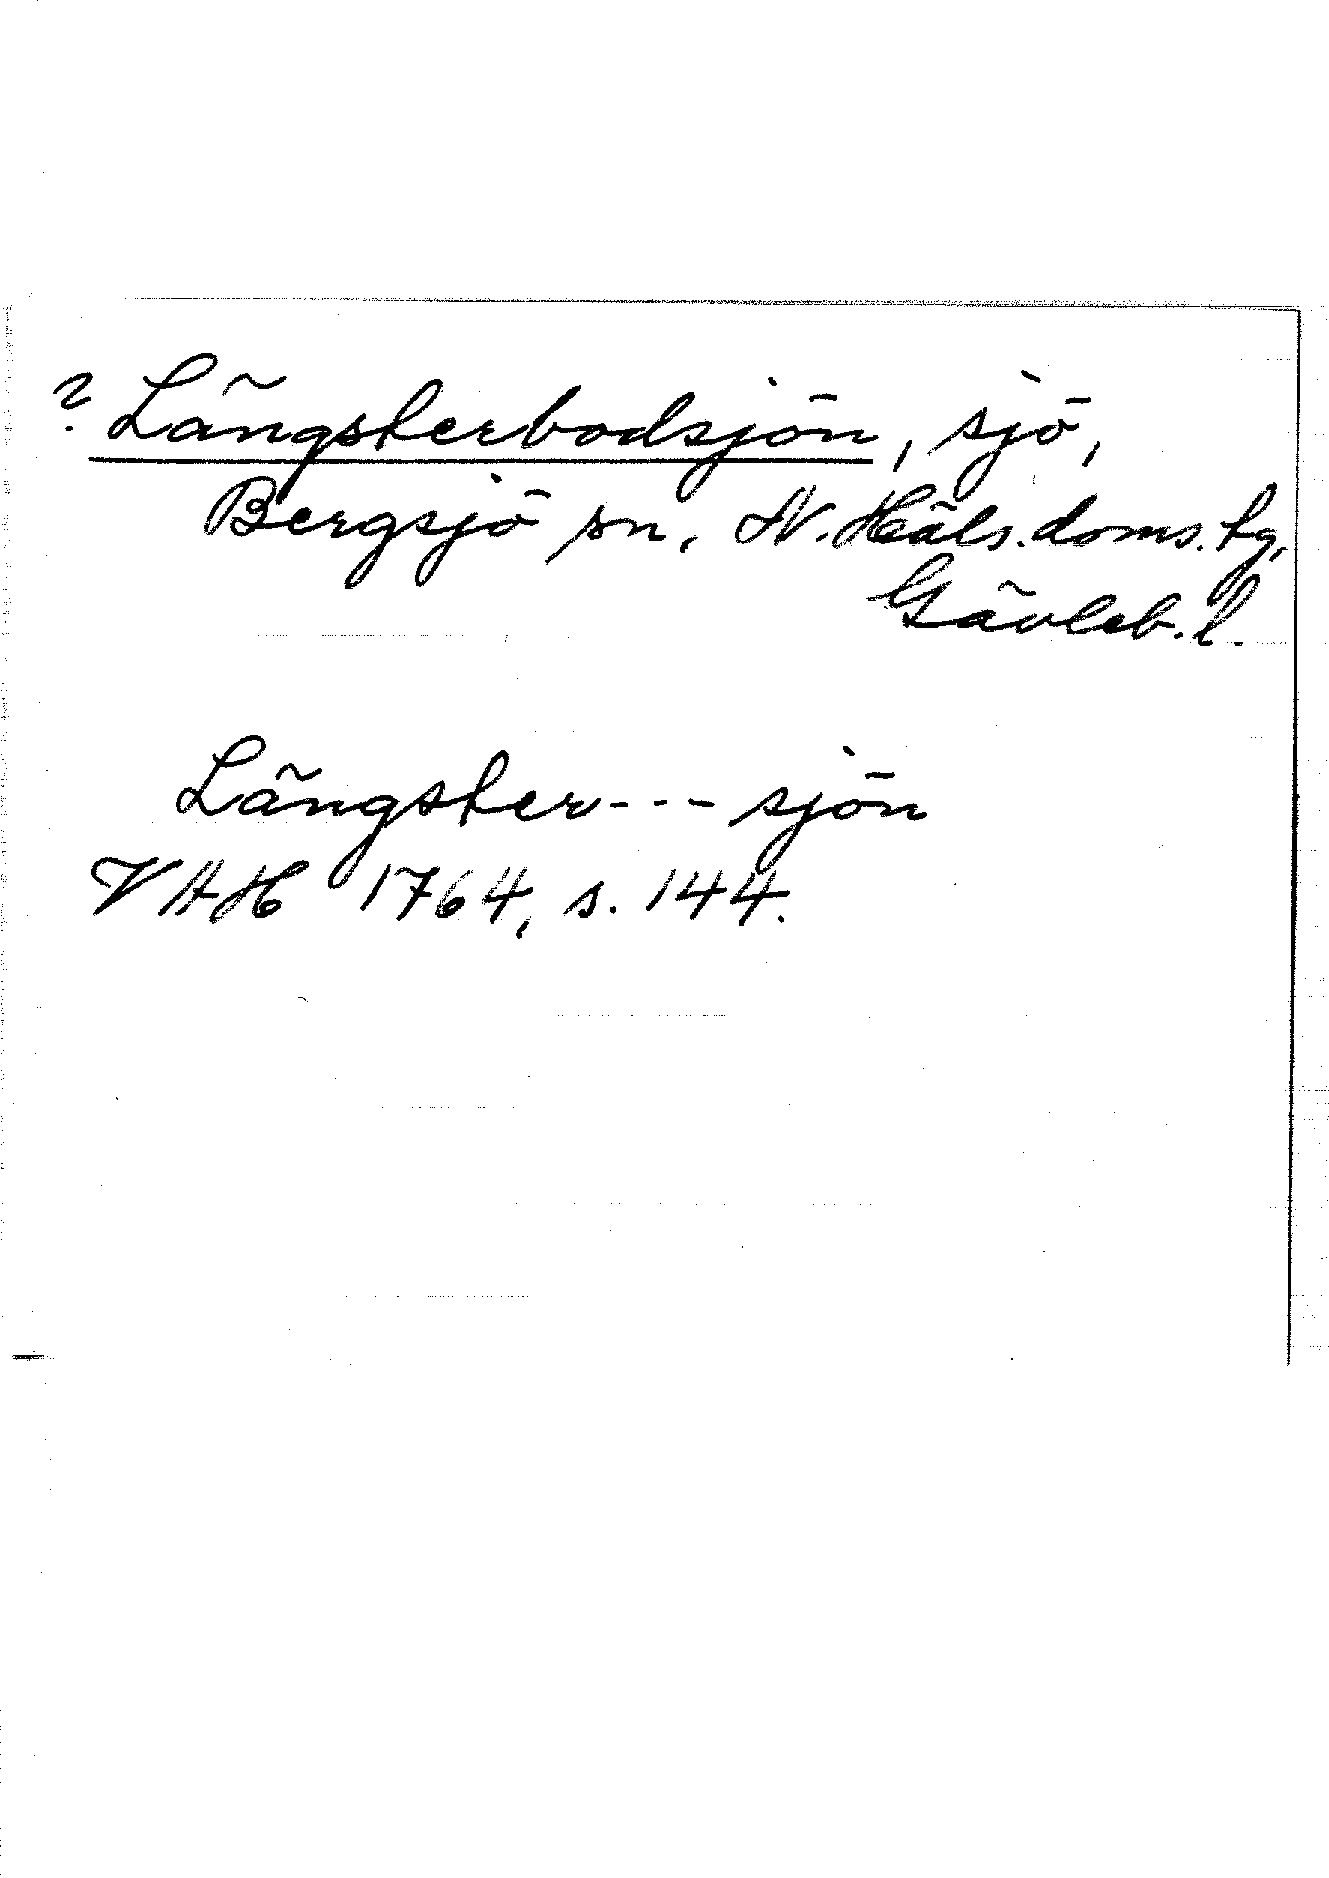 ? Längsterbodsjön, sjö,
Bergsjö sn, N. Häls. doms. tg,
Gävleb. l.
Längster---sjön
VAH 1764, s. 144.